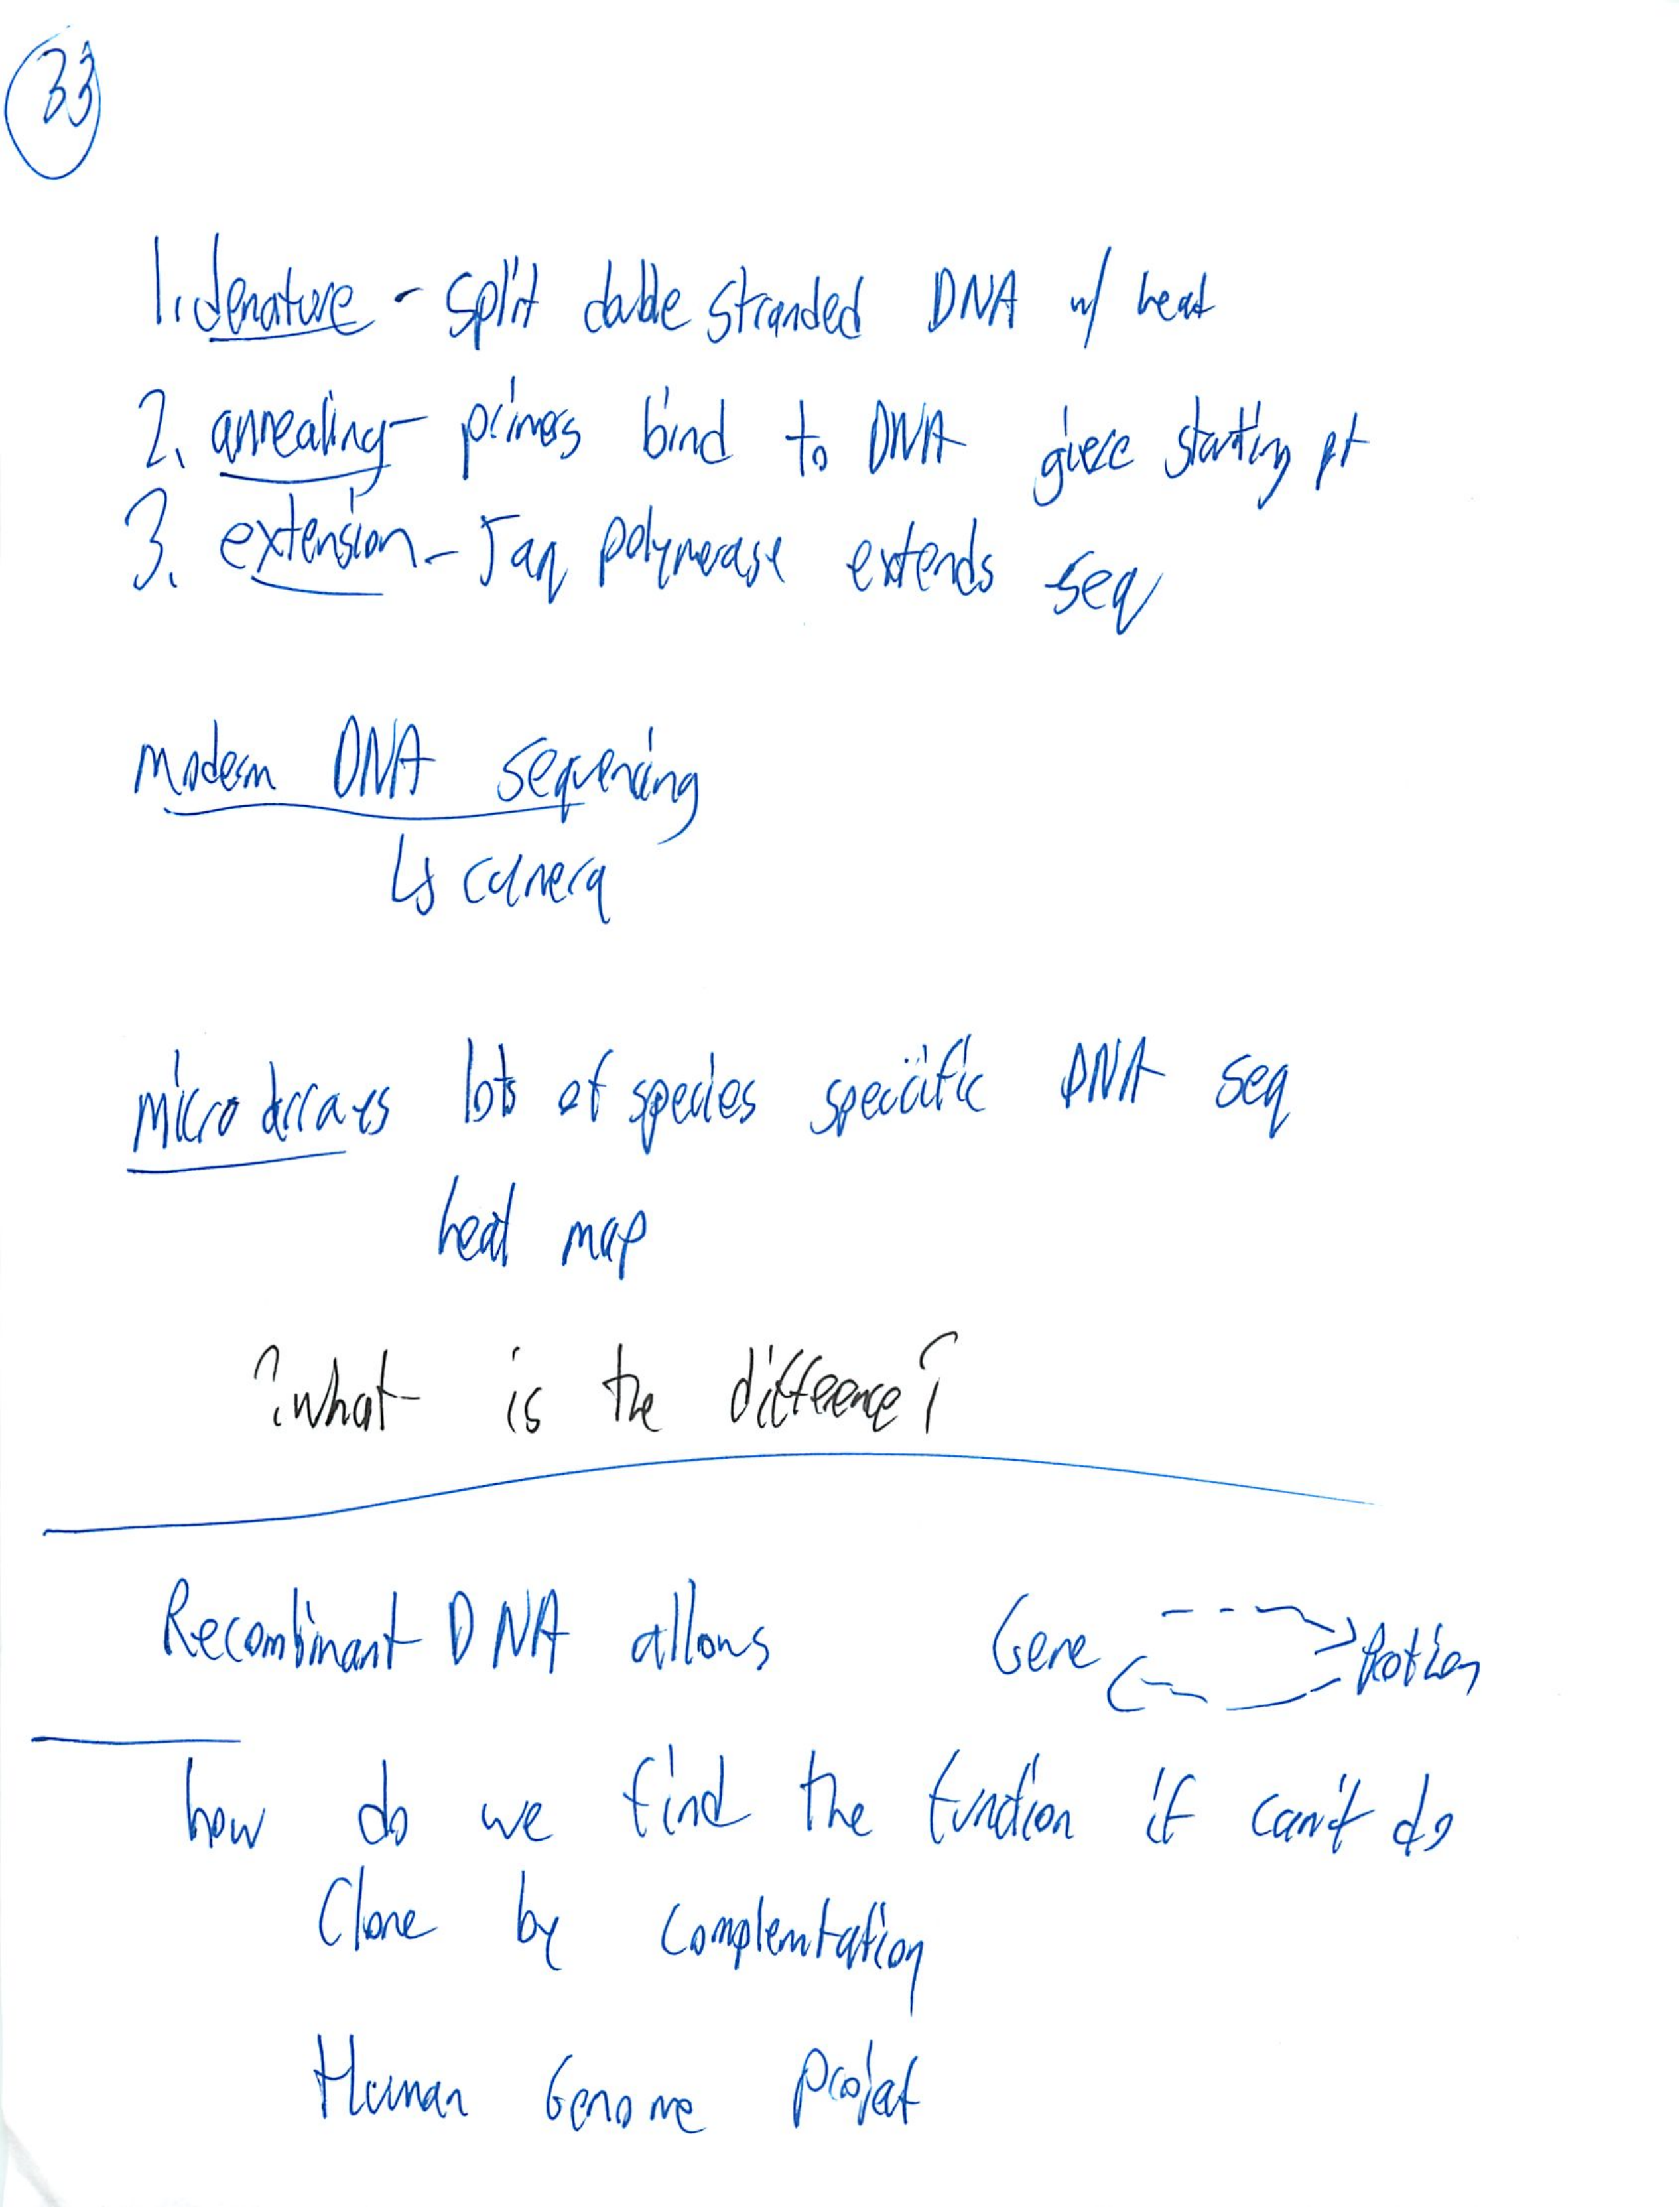 33
1. denature - split double stranded DNA w/ heat
2. annealing - primers bind to DNA give starting pt
3. extension - Taq polymerase extends seq
Modern DNA sequencing
↳ camera
micro arrays lots of species specific DNA seq
heat map
? what is the difference?
Recombinant DNA allows Gene Protien
how do we find the function if can't do
Clone by complemtation
Human Genome Project